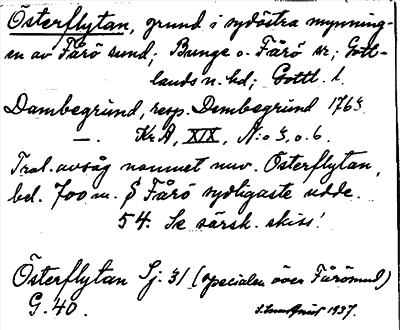 Österflytan, grund i sydöstra mynning-
en av Fårö sund; Bunge o. Fårö sr; Gott-
lands n. hd; Gottl. l.
Dambegrund, resp. Dembegrund 1765.
—. Kr A, XIX, N:o 5, o. 6.
Trol. avsåg namnet nuv. Österflytan,
bel. 700 m. S Fårö sydligaste udde.
54. Se särsk. skiss!
Österflytan Sj. 31 (specialen över Fårösund)
G. 40. 1937.